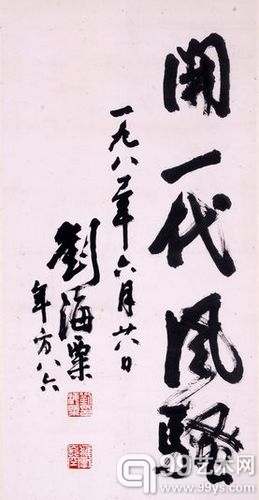 開一代風騷
一九八一年六月廿八日
劉海粟
年方八六
99艺术网
www.99ys.com